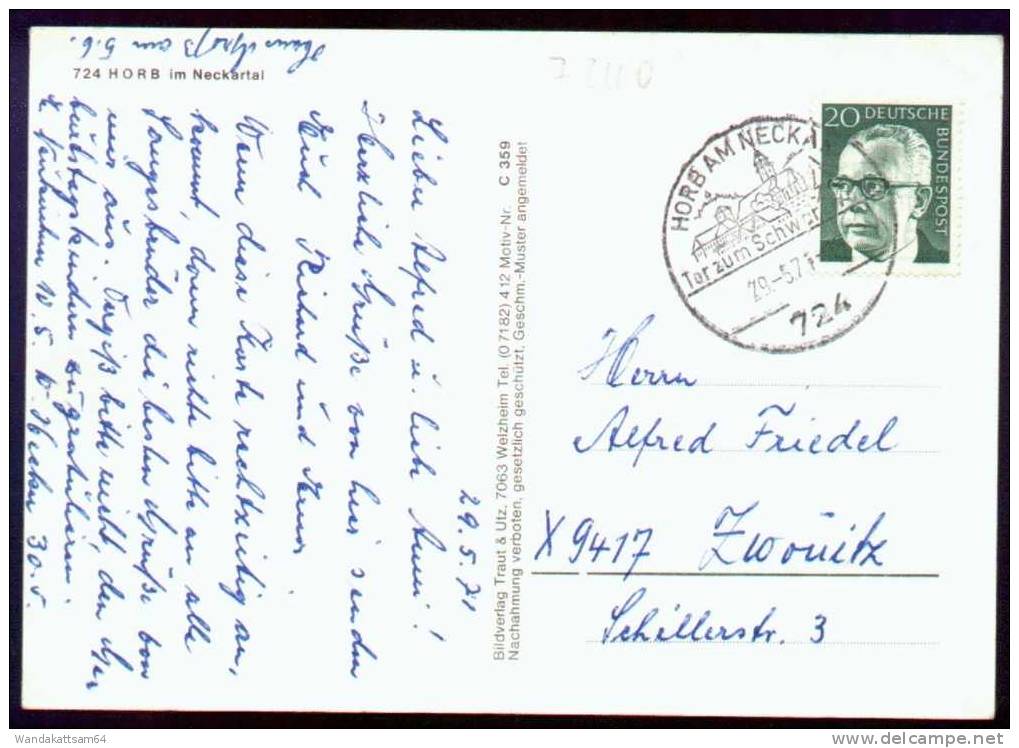 724 HORB im Neckartal
29.5.71
Lieben Alfred u. liebe Anni!
Herzliche Grüße von hier senden
Euch Richard und
Wenn diese Karte rechtzeitig an,
kommt, dann richte bitte an alle
Sangesbrüder die besten Grüße von
mir aus. Vergiß bitte nicht, den Ge,
burtstagskindern zu gratulieren.
30.5.
am 5.6.
Bildverlag Traut & Utz, 7063 Welzheim Tel. (0 7182) 412 Motiv-Nr. C 359
Nachahmung verboten, gesetzlich geschützt, Geschm.-Muster angemeldet
HORB AM NECKA
Tor zum Schwar
29.-5.71
724
20 DEUTSCHE
BUNDESPOST
Herrn
Alfred Friedel
X 9417 Zwönitz
Schillerstr. 3
Wandakattsam64
www.delcampe.net